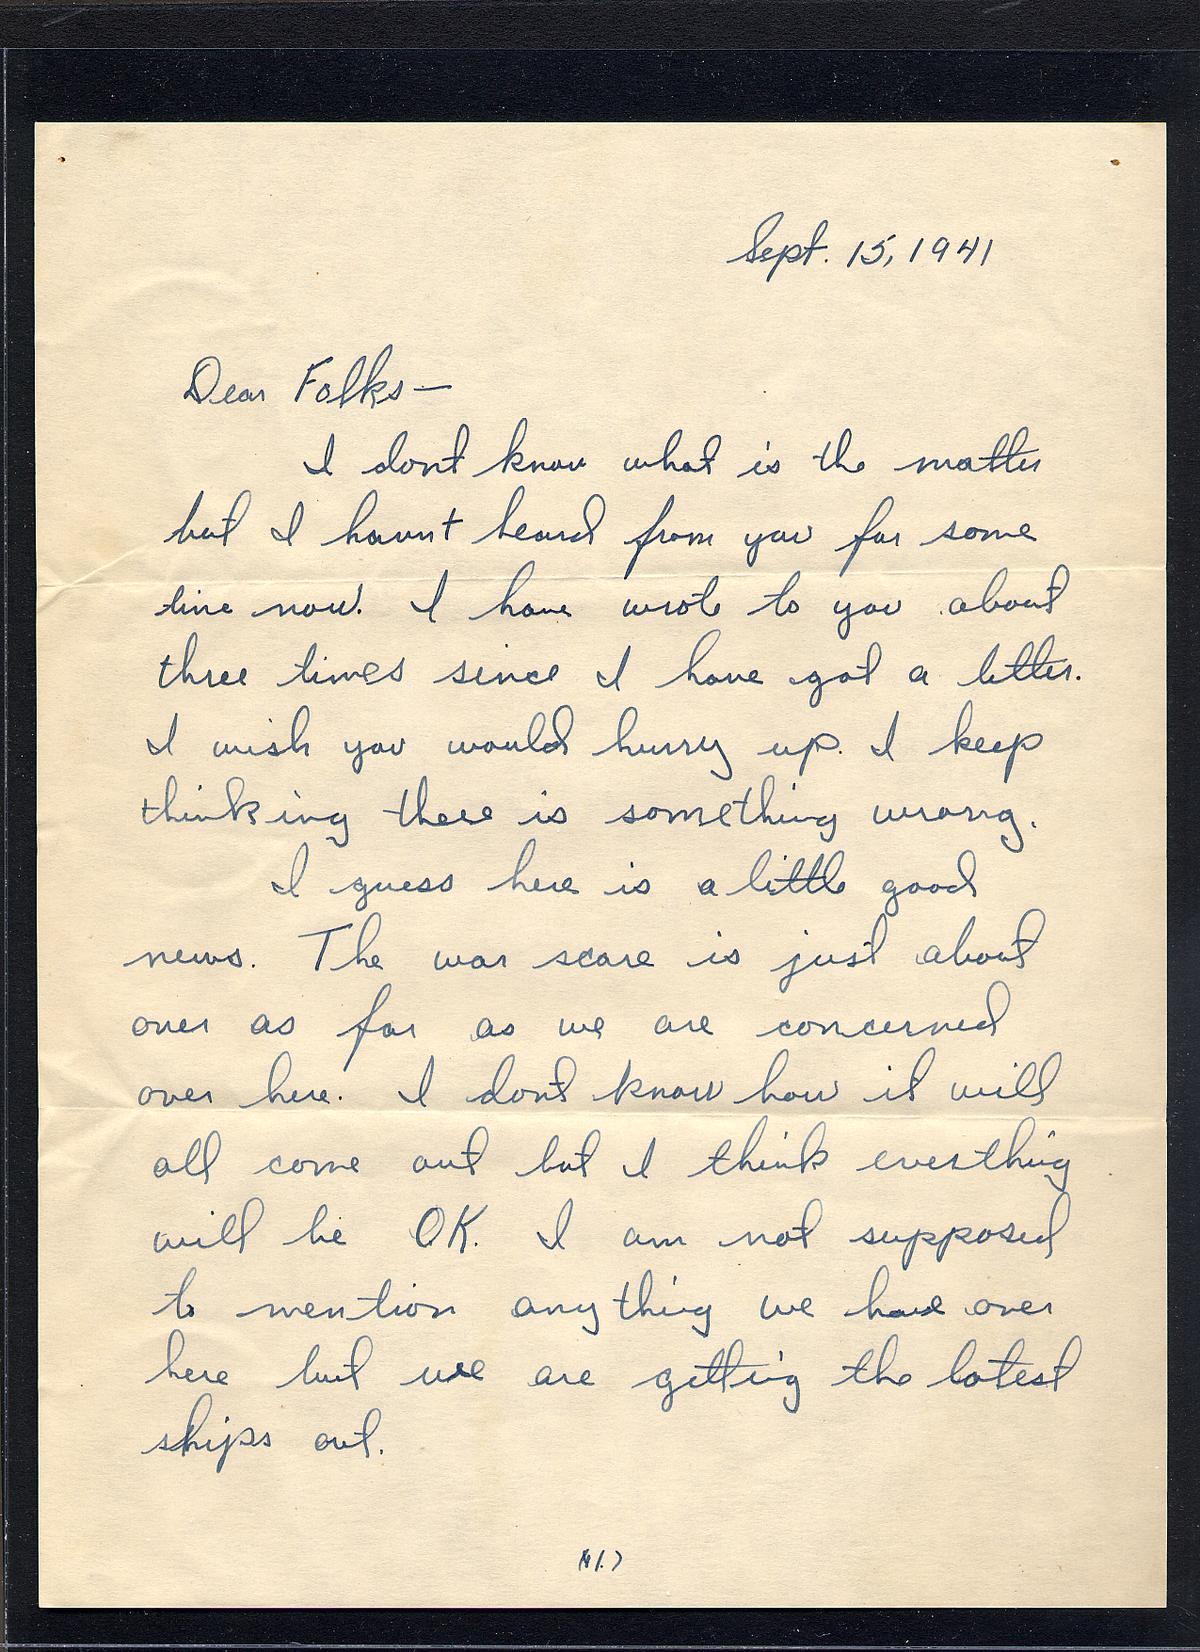 Sept. 15, 1941
Dear Folks—
I dont know what is the matter
but I havnt heard from you for some
time now. I have wrote to you about
three times since I have got a letter.
I wish you would hurry up. I keep
thinking there is something wrong.
I guess here is a little good
news. The war scare is just about
over as far as we are concerned
over here. I dont know how it will
all come out but I think everthing
will be OK. I am not supposed
to mention anything we have over
here but we are getting the latest
ships out.
(1.)